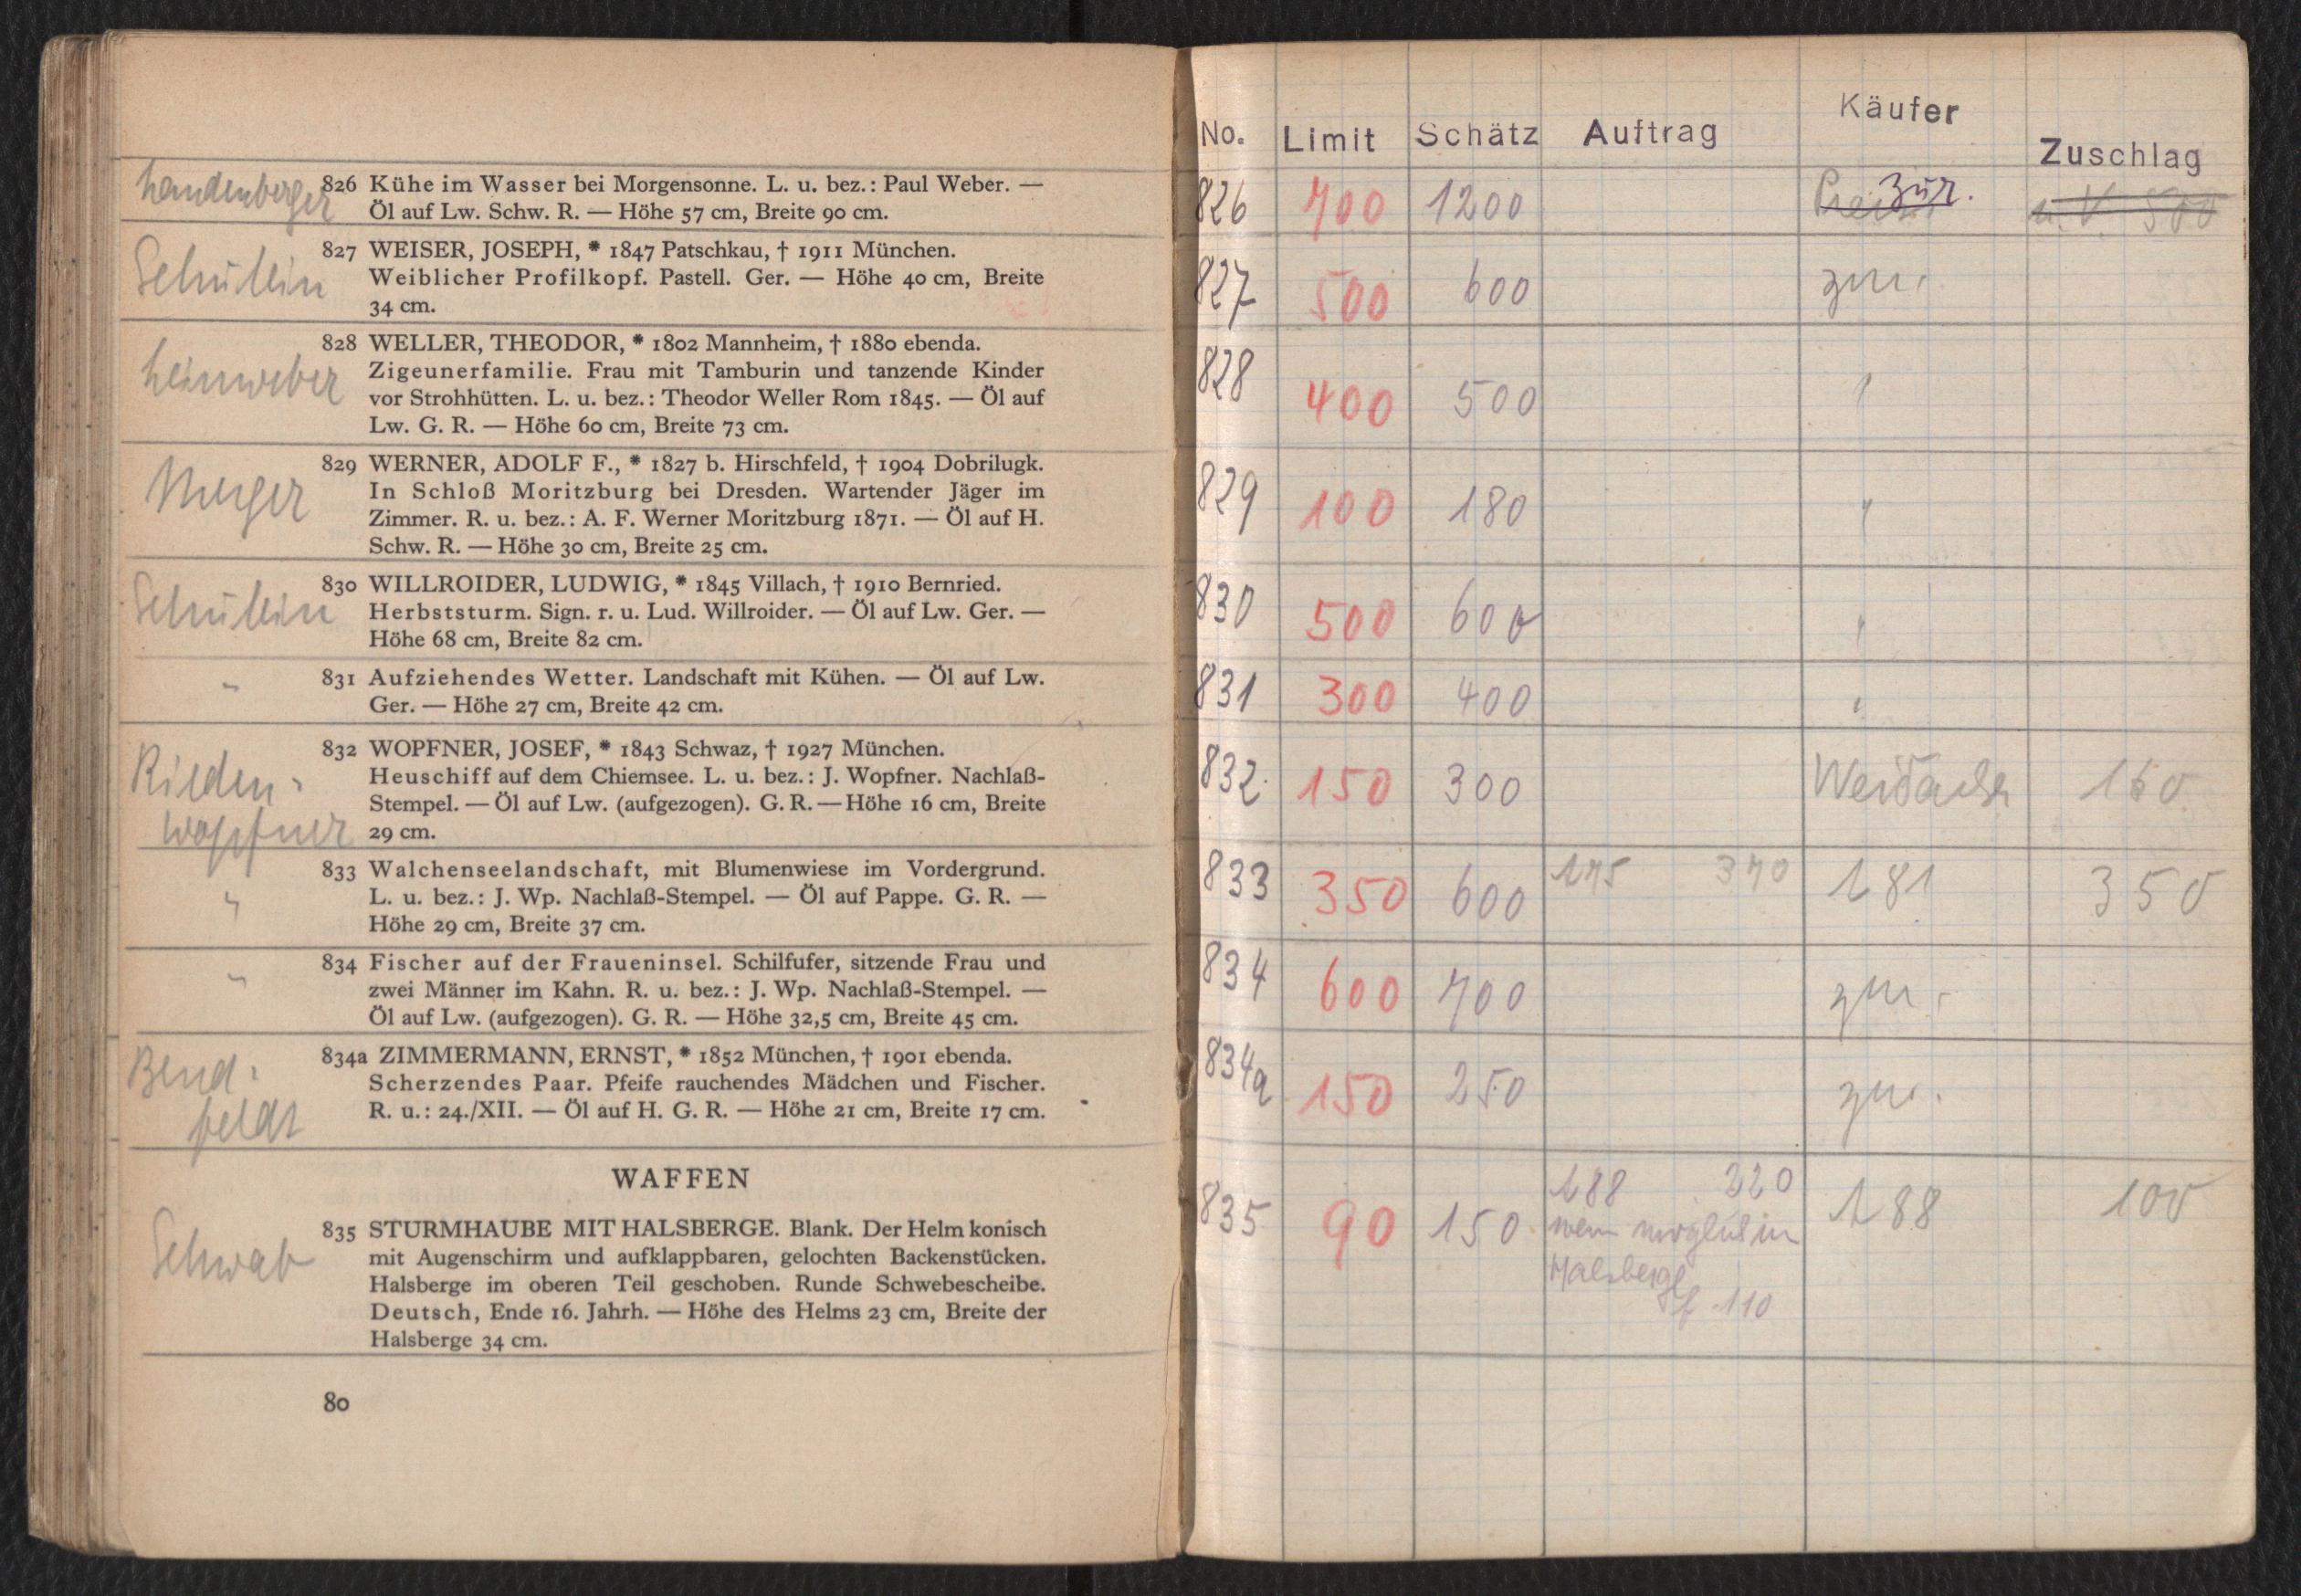 Landenberger
826 Kühe im Wasser bei Morgensonne. L. u. bez.: Paul Weber. —
Öl auf Lw. Schw. R. — Höhe 57 cm, Breite 90 cm.
Schüllein
827 WEISER, JOSEPH, * 1847 Patschkau, † 1911 München.
Weiblicher Profilkopf. Pastell. Ger. — Höhe 40 cm, Breite
34 cm.
Leinweber
828 WELLER, THEODOR, * 1802 Mannheim, † 1880 ebenda.
Zigeunerfamilie. Frau mit Tamburin und tanzende Kinder
vor Strohhütten. L. u. bez.: Theodor Weller Rom 1845. — Öl auf
Lw. G. R. — Höhe 60 cm, Breite 73 cm.
829 WERNER, ADOLF F., * 1827 b. Hirschfeld, † 1904 Dobrilugk.
In Schloß Moritzburg bei Dresden. Wartender Jäger im
Zimmer. R. u. bez.: A. F. Werner Moritzburg 1871. — Öl auf H.
Schw. R. — Höhe 30 cm, Breite 25 cm.
Schüllein
830 WILLROIDER, LUDWIG, * 1845 Villach, † 1910 Bernried.
Herbststurm. Sign. r. u. Lud. Willroider. — Öl auf Lw. Ger. —
Höhe 68 cm, Breite 82 cm.
"
831 Aufziehendes Wetter. Landschaft mit Kühen. — Öl auf Lw.
Ger. — Höhe 27 cm, Breite 42 cm.
Rieden-
Wopfner
832 WOPFNER, JOSEF, * 1843 Schwaz, † 1927 München.
Heuschiff auf dem Chiemsee. L. u. bez.: J. Wopfner. Nachlaß-
Stempel. — Öl auf Lw. (aufgezogen). G. R. — Höhe 16 cm, Breite
29 cm.
"
833 Walchenseelandschaft, mit Blumenwiese im Vordergrund.
L. u. bez.: J. Wp. Nachlaß-Stempel. — Öl auf Pappe. G. R. —
Höhe 29 cm, Breite 37 cm.
"
834 Fischer auf der Fraueninsel. Schilfufer, sitzende Frau und
zwei Männer im Kahn. R. u. bez.: J. Wp. Nachlaß-Stempel. —
Öl auf Lw. (aufgezogen). G. R. — Höhe 32,5 cm, Breite 45 cm.
Bend-
feldt
834a ZIMMERMANN, ERNST, * 1852 München, † 1901 ebenda.
Scherzendes Paar. Pfeife rauchendes Mädchen und Fischer.
R. u.: 24./XII. — Öl auf H. G. R. — Höhe 21 cm, Breite 17 cm.
WAFFEN
Schwab
835 STURMHAUBE MIT HALSBERGE. Blank. Der Helm konisch
mit Augenschirm und aufklappbaren, gelochten Backenstücken.
Halsberge im oberen Teil geschoben. Runde Schwebescheibe.
Deutsch, Ende 16. Jahrh. — Höhe des Helms 23 cm, Breite der
Halsberge 34 cm.
80
No. Limit Schätz Auftrag Käufer Zuschlag
826 700 1200 zur. u. V. 500
827 500 600 zur.
828 400 500 "
829 100 180 "
830 500 600 "
831 300 400 "
832 150 300 160
833 350 600 175 370 181 350
834 600 700 zur.
834a 150 250 zur.
835 90 150 188 220 188 100
wenn
Halsberge
110